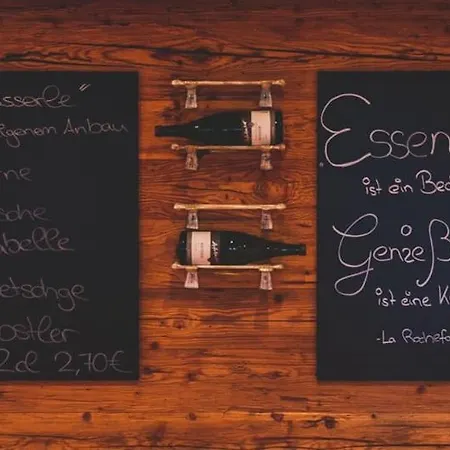 sserle"
igenem Anbau
rne
sche
abelle
etschge
ostler
2cl 2,70€
„Essen
ist ein Bed
Genieß
ist eine K
-La Rochefo